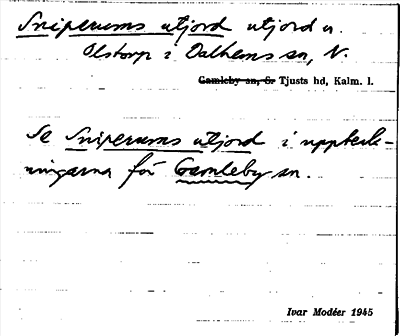 Sniperums utjord utjord u.
Olstorp i Dalhems sn, N.
Gamleby sn, Sr Tjusts hd, Kalm. l.
Se Sniperums utjord i uppteck-
ningarna för Gamleby sn.
Ivar Modéer 1945